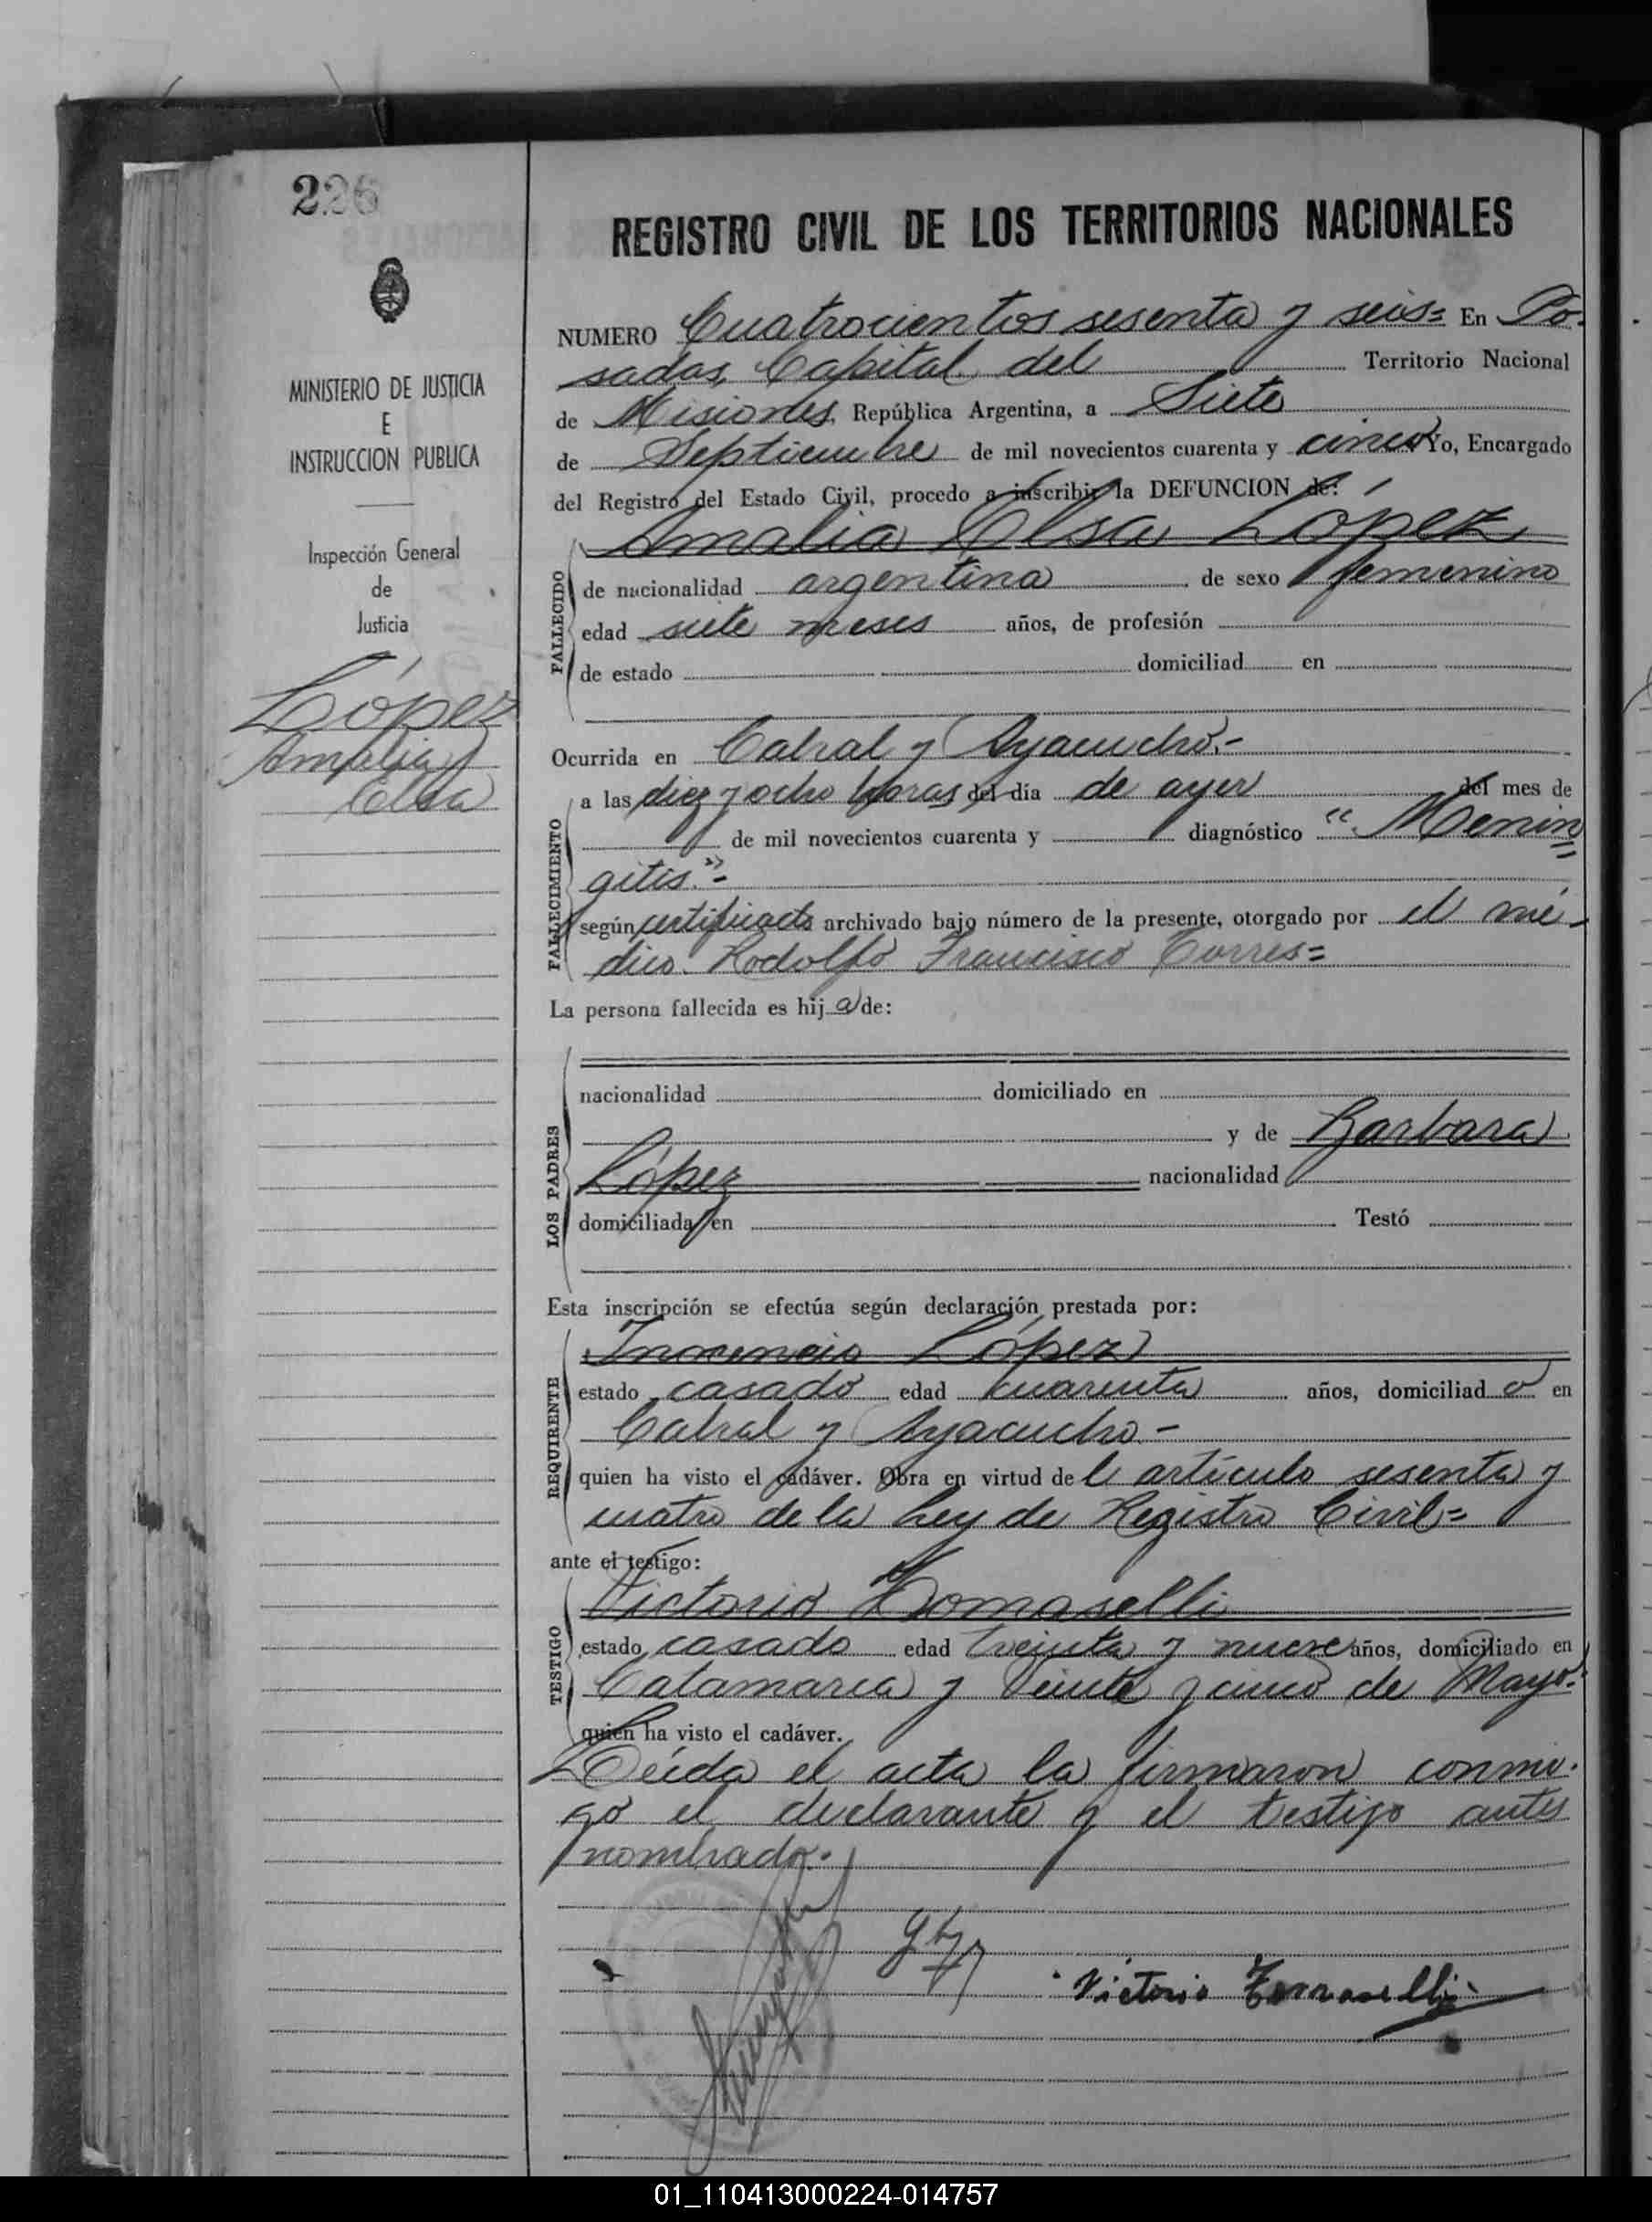 226
REGISTRO CIVIL DE LOS TERRITORIOS NACIONALES
MINISTERIO DE JUSTICIA
E
INSTRUCCION PUBLICA
Inspección General
de
Justicia
López
Amalia
Elsa
NUMERO Cuatrocientos sesenta y seis= En Po-
sadas, Capital del Territorio Nacional
de Misiones, República Argentina, a Siete
de Septiembre de mil novecientos cuarenta y cinco Yo, Encargado
del Registro del Estado Civil, procedo a inscribir la DEFUNCION de:
Amalia Elsa López
FALLECIDO
de nacionalidad argentina de sexo femenino
edad siete meses años, de profesión
de estado domiciliad en
Ocurrida en Cabral y Ayacucho.-
FALLECIMIENTO
a las diez y ocho horas del día de ayer del mes de
de mil novecientos cuarenta y diagnóstico "Menin
gitis."-
según certificado archivado bajo número de la presente, otorgado por el mé-
dico Rodolfo Francisco Torres=
La persona fallecida es hija de:
LOS PADRES
nacionalidad domiciliado en
y de Barbara
López nacionalidad
domiciliada en Testó
Esta inscripción se efectúa según declaración prestada por:
REQUIRENTE
Inocencio López
estado casado edad cuarenta años, domiciliado en
Cabral y Ayacucho.-
quien ha visto el cadáver. Obra en virtud del artículo sesenta y
cuatro de la Ley de Registro Civil=
ante el testigo:
TESTIGO
Victorio Tomaselli
estado casado edad treinta y nueve años, domiciliado en
Catamarca y Veinte y cinco de Mayo.-
quien ha visto el cadáver.
Leída el acta la firmaron conmi-
go el declarante y el testigo antes
nombrado.-
Victorio Tomaselli
01_110413000224-014757